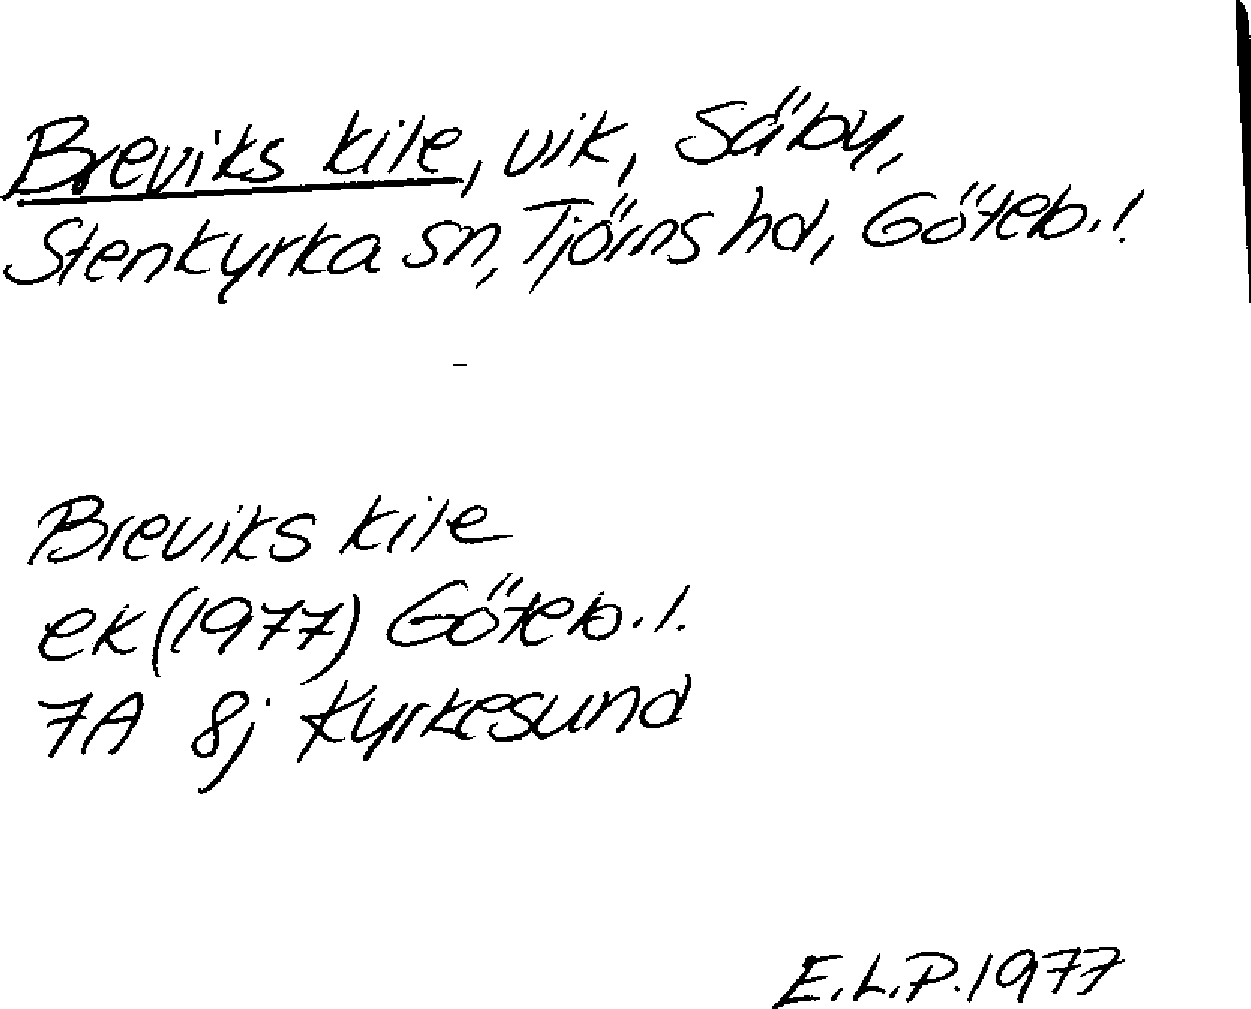 Breviks kile, vik, Säby,
Stenkyrka sn, Tjörns hd, Göteb. l.
Breviks kile
ek (1977) Göteb. l.
7A 8j Kyrkesund
E.L.P. 1977